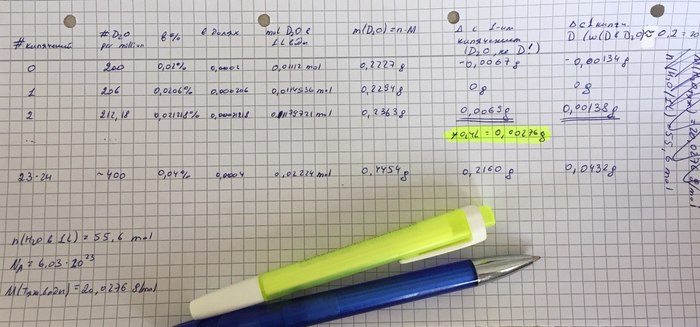 # кипячений # D₂O per million в % в долях mol D₂O в 1L воды m(D₂O)=n·M Δ с 1-им кипячением (D₂O, не D!) Δ с 1 кипяч. D (ω(D в D₂O)≈0,2
0 200 0,02% 0,0002 0,01112 mol 0,2227g -0,0067g -0,00134g
1 206 0,0206% 0,000206 0,0114536 mol 0,2294g 0g 0g
2 212,18 0,021218% 0,00021218 0,01179721 mol 0,2363g 0,0069g 0,00138g
*0,4L = 0,00276g
... ... ... ...
23-24 ~400 0,04% 0,0004 0,02224 mol 0,4454g 0,2160g 0,0432g
n(H₂O в 1L) = 55,6 mol
N_A = 6,03·10²³
M(тяж.воды) = 20,0276 g/mol
n(H₂O/1L) = 55,6 mol
= 20,0276 g/mol